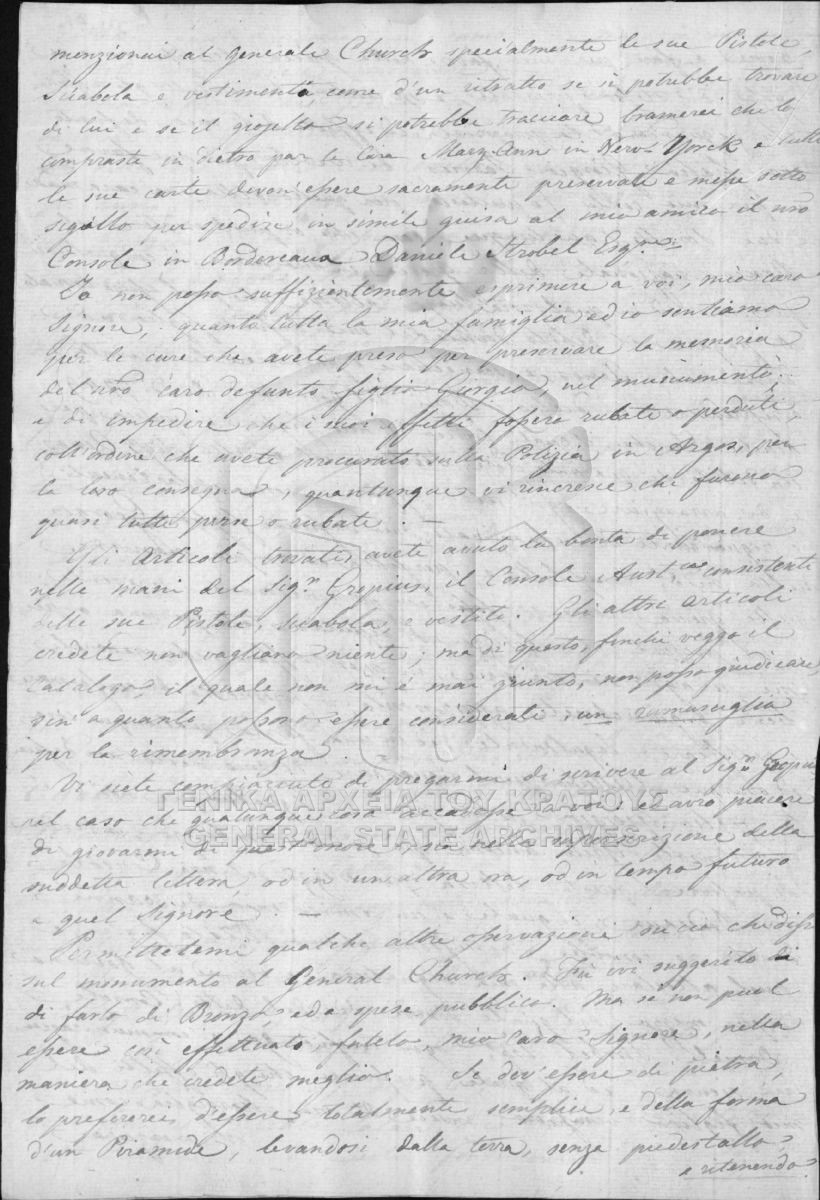 menzionai al Generale Church specialmente le sue Pistole,
Sciabola e vestimenta, come d'un ritratto se si potrebbe trovare
di lui e se il giojello si potrebbe tracciare bramerei che lo
compraste in dietro par la Cara Mary Ann in New Yorck e tutte
le sue carte devon' essere sacramente preservate e messe sotto
sigillo per spedire in simile guisa al mio amico il nro
Console in Bordeaux Daniele Strobel Esqre:
Io non posso suffizientemente esprimere a voi, mio caro
Signore, quanto tutta la mia famiglia ed io sentiamo
per le cure che avete preso per preservare la memoria
del nro caro defunto figlio Giorgio, nel
e di impedire che i suoi effetti fossero rubati o perduti,
coll'ordine che avete procurato sulla Polizia in Argos, per
la loro consegna, quantunque vi rincresce che furono
quasi tutti perse o rubati. —
Gli Articoli trovati, avete avuto la bonta di ponere
nelle mani del Sigr Gropius, il Console Austco consistenti
delle sue Pistole, sciabola, e vestiti. Gli altri articoli
credete non vagliano niente; ma di questo, finchè veggo il
Catalogo, il quale non mi è mai giunto, non posso giudicare,
sin a quanto possono essere considerati, un rimasuglio
per la rimembranza.
Vi siete compiaciuto di pregarmi di scrivere al Sigr Gropius
nel caso che qualunque cosa accadesse a voi: ed avrò piacere
di giovarmi di quest'onore, sia nella soprascrizione della
suddetta lettera, od in un'altra ora, od in tempo futuro
a quel Signore. —
Permettetemi qualche altre osservazione su ciò che dissi
sul monumento al General Church. Fu ivi suggerito
di farlo di Bronzo, ed a spese pubblico. Ma se non puol
essere così effettuato, fatelo, mio caro Signore, nella
maniera che credete meglio. Se dev' essere di pietra,
lo prefererei, d'essere totalmente semplice, e della forma
d'un Piramide, levandosi dalla terra, senza piedestallo,
e ritenendo
ΓΕΝΙΚΑ ΑΡΧΕΙΑ ΤΟΥ ΚΡΑΤΟΥΣ
GENERAL STATE ARCHIVES